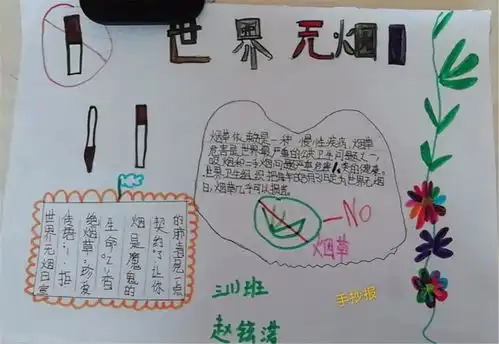 世界无烟日
烟草依赖是一种慢性疾病，烟草
危害是世界最严重的公共卫生问题之一，
吸烟和二手烟问题严重危害人类的健康。
世界卫生组织把每年的5月31日定为世界无烟
日，烟草几乎可以损害
NO
烟草
的那毒恶一点
契约了让你
烟是魔鬼的
生命吃!省
绝烟草:珍爱
传语:!拒
世界无烟日宣
三(1)班
赵铉渚
手抄报